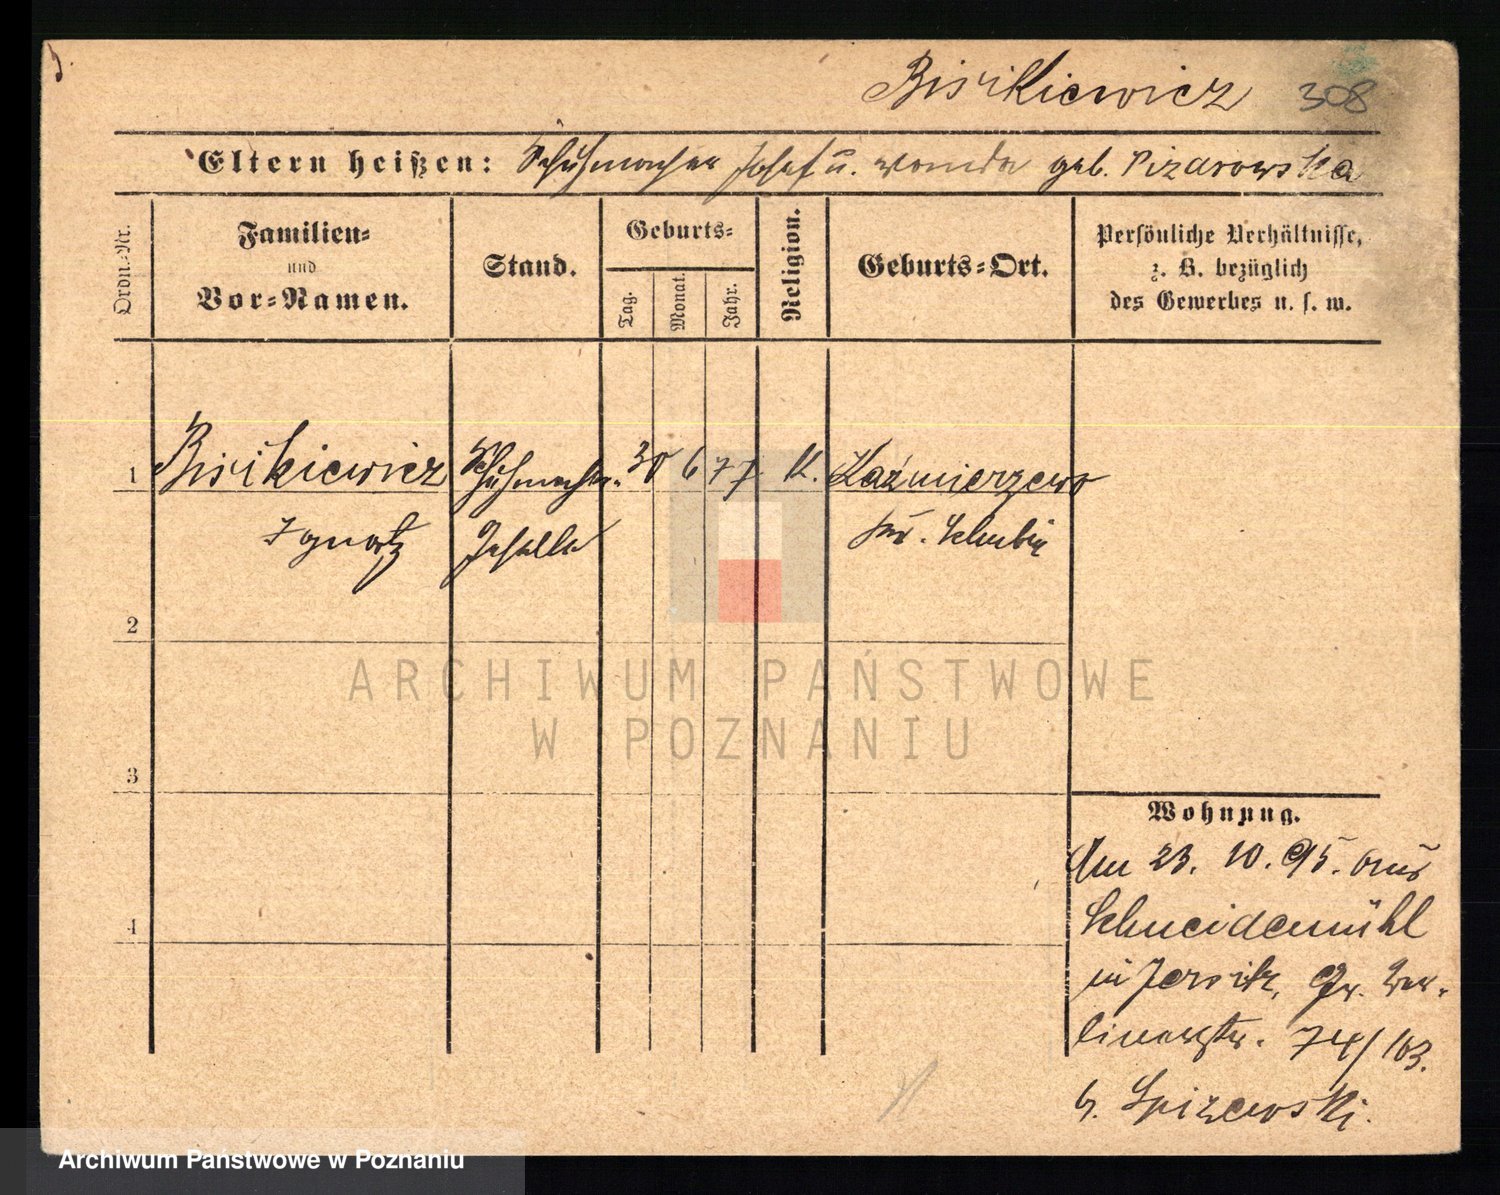 Bisikiewicz 308
Eltern heißen: Schuhmacher Josef u. Wanda geb. Pizarowska
Ordn.-Nr.
Familien-
und
Vor-Namen.
Stand.
Geburts-
Tag.
Monat.
Jahr.
Religion.
Geburts-Ort.
Persönliche Verhältnisse,
z. B. bezüglich
des Gewerbes u. s. w.
1 Bisikiewicz Schuhmacher- 30 6 77 K. Kaźmierzewo
Ignatz Geselle Kr. Schubin
2
3
4
Wohnung.
Am 23. 10. 95. aus
Schneidemühl
in Jersitz, Gr. Ber-
linerstr. 74/103.
b. Spizewski.
ARCHIWUM PAŃSTWOWE
W POZNANIU
Archiwum Państwowe w Poznaniu